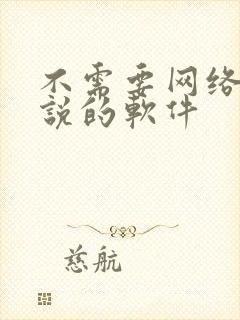 不需要网络
說的軟件
慈航